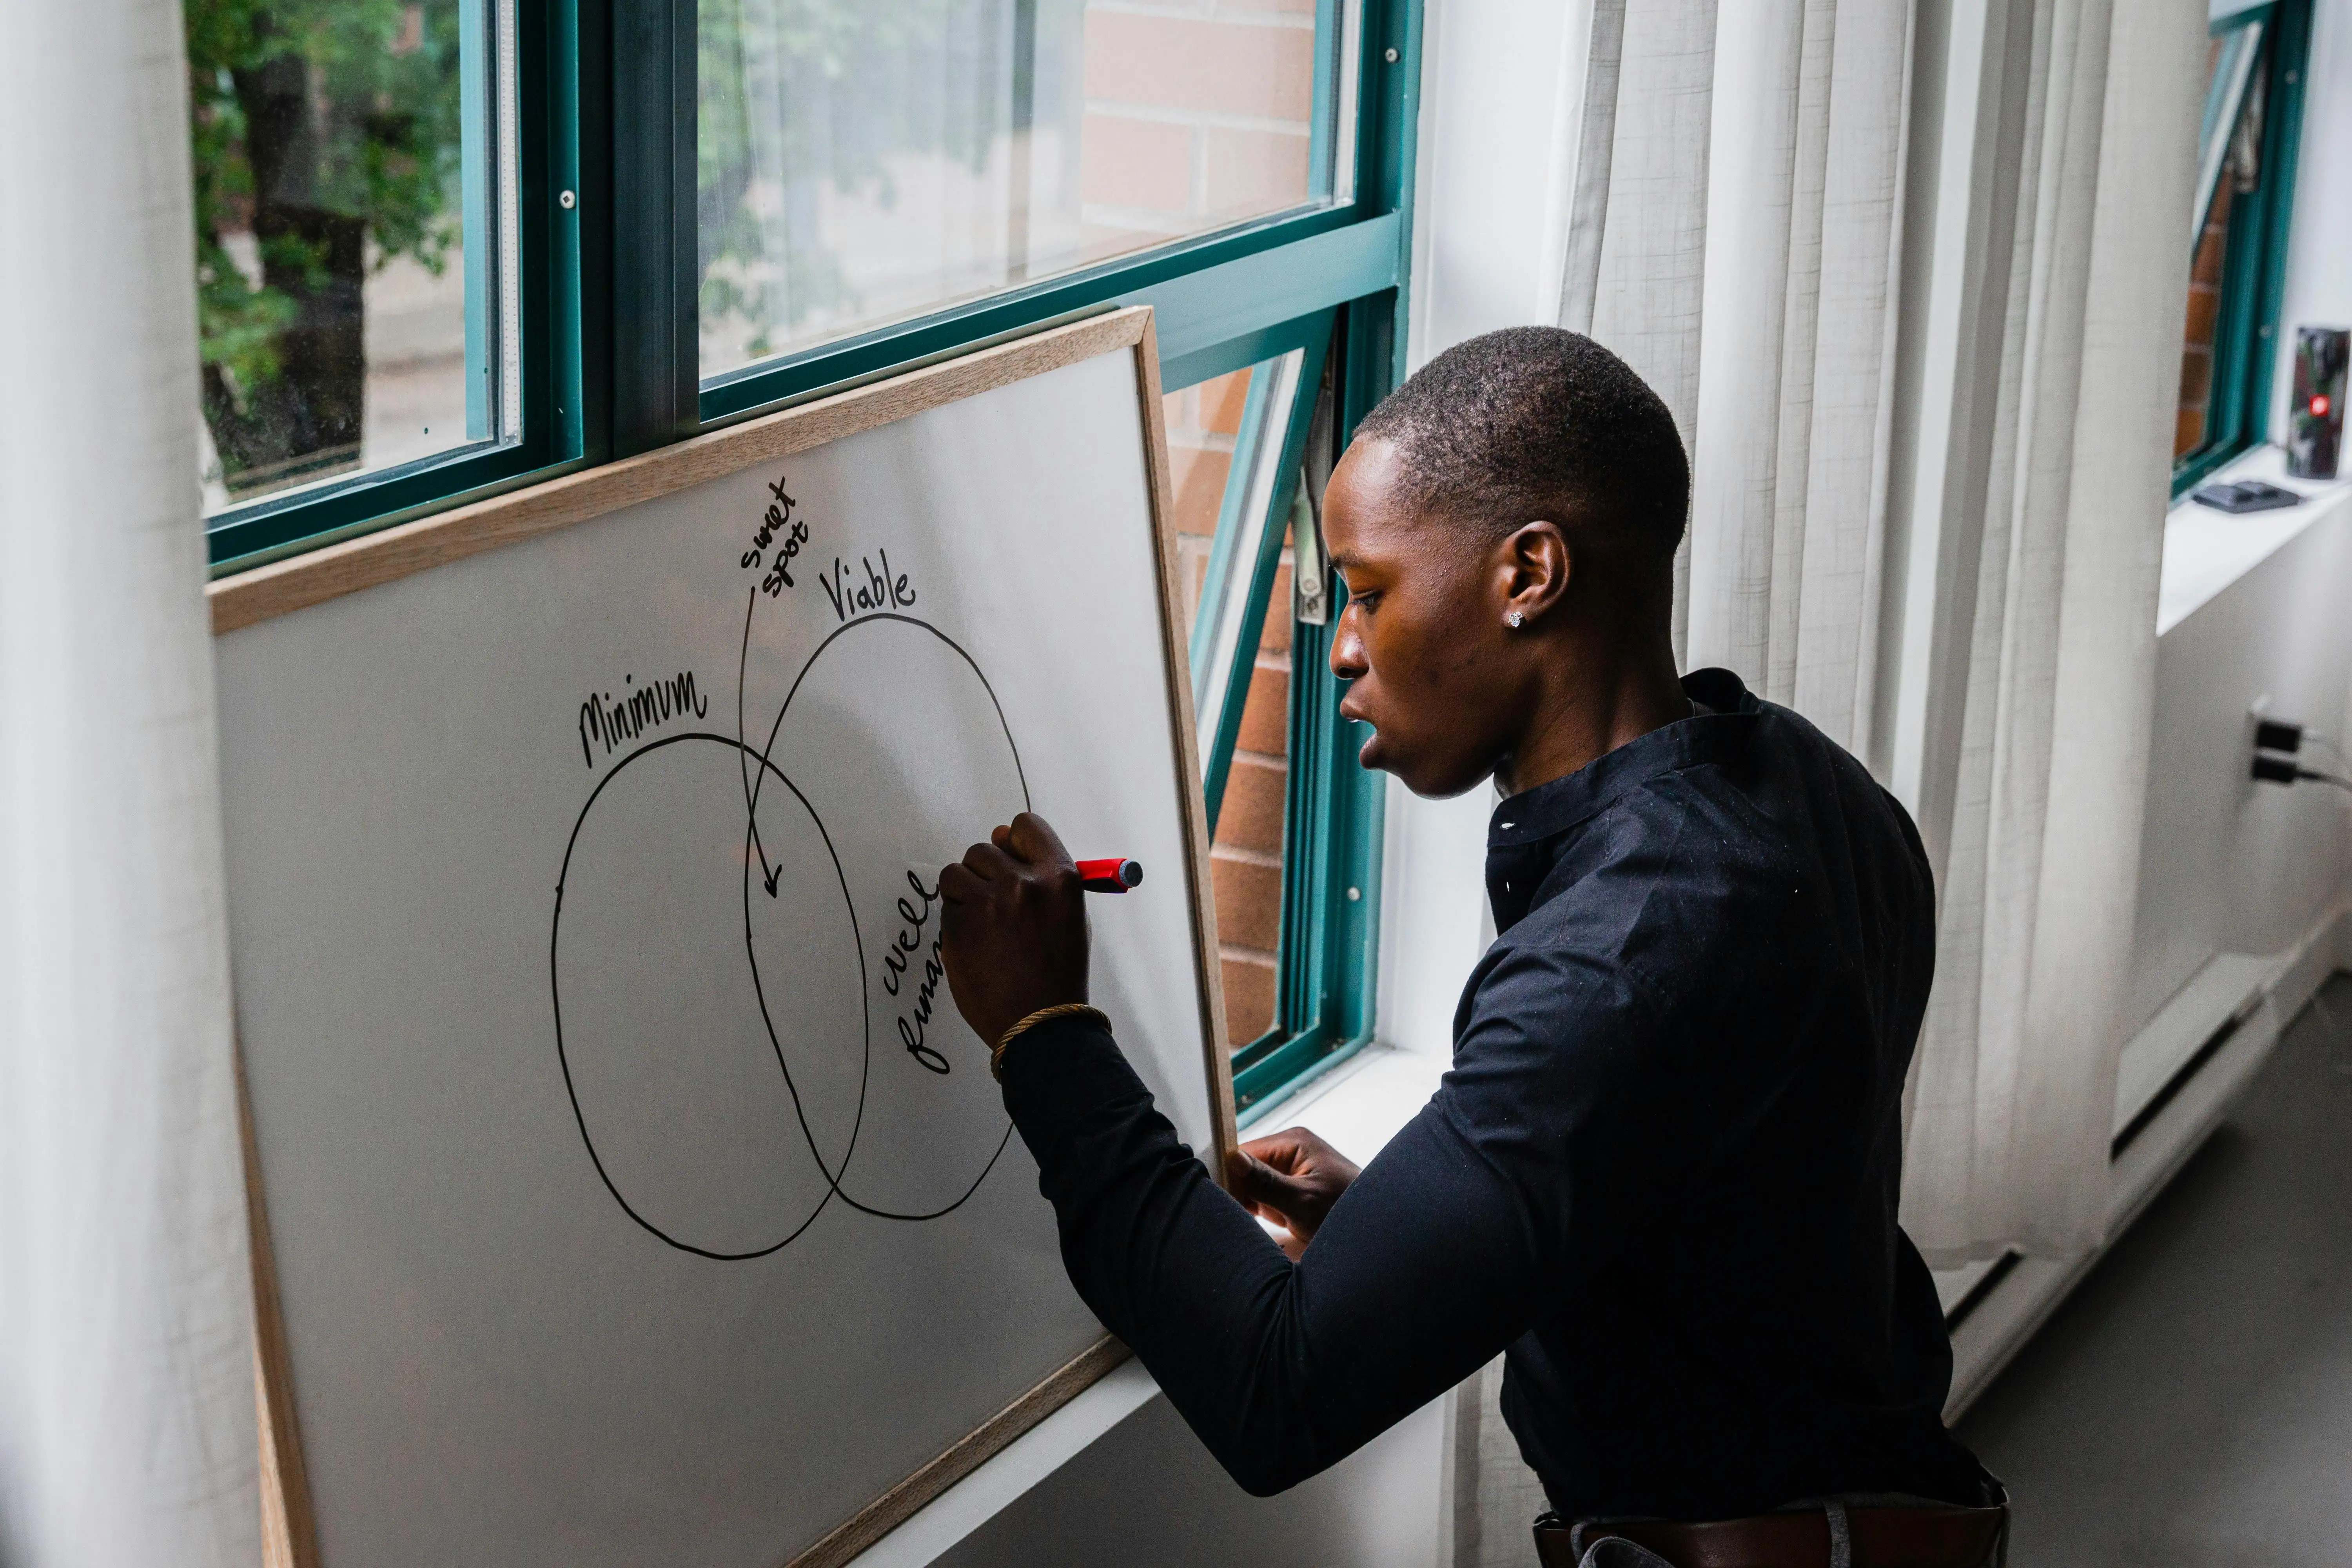 sweet
spot
Viable
Minimum
well